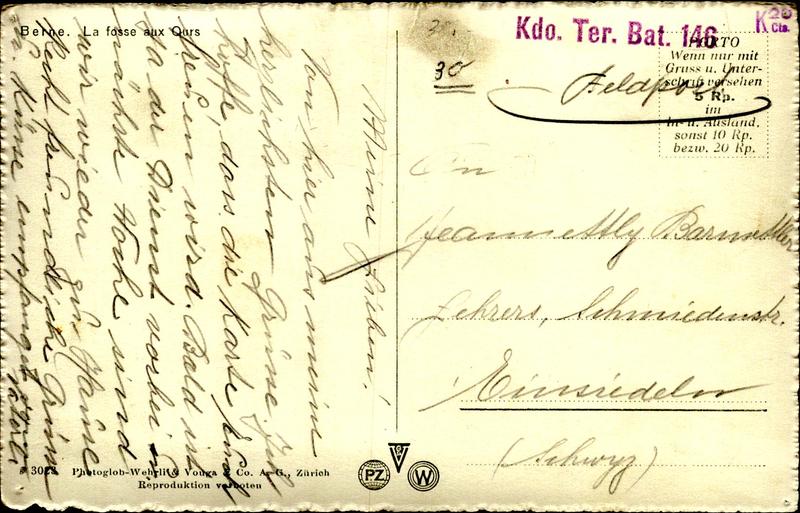 Berne. La fosse aux Ours
Meine Lieben!
Von hier aus meine
herzlichsten Grüsse. Ich
hoffe, dass die Karte Euch
freuen wird. Bald ist
ja der Dienst vorbei &
nächste Woche sind
wir wieder zu Hause
Recht freundliche Grüsse
u. Küsse empfangt
3023 Photoglob-Wehrli & Vouga & Co. A.-G., Zürich
Reproduktion verboten
PZ
W
30
Kdo. Ter. Bat. 146
K 20 Cts.
PORTO
Wenn nur mit
Gruss u. Unter-
schrift versehen
5 Rp.
im
In- u. Ausland,
sonst 10 Rp.
bezw. 20 Rp.
Feldpost
An
Lehrers, Schmiedenstr.
Einsiedeln
(Schwyz)